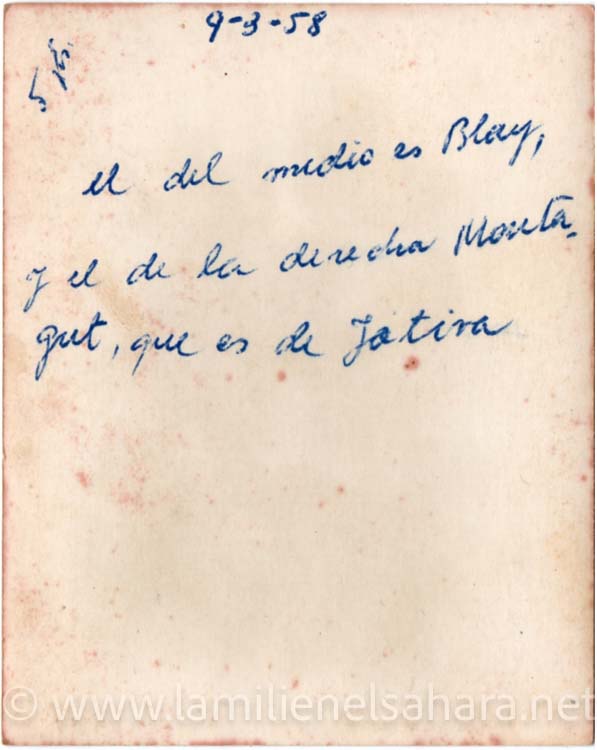 9-3-58
el del medio es Blay,
y el de la derecha Monta-
gut, que es de Játiva
© www.lamilienelsahara.net